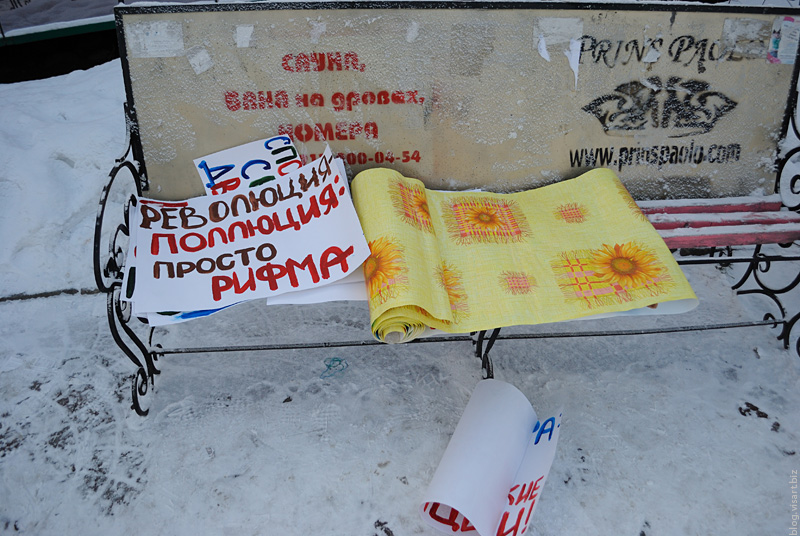 САУНА,
ВАНА на дровах,
НОМЕРА
00-04-54
PRINS PAOL
www.prinspaolu.com
СПС
РЕВОЛЮЦИЯ
ПОЛЛЮЦИЯ:
ПРОСТО
РИФМА
blog.visart.biz